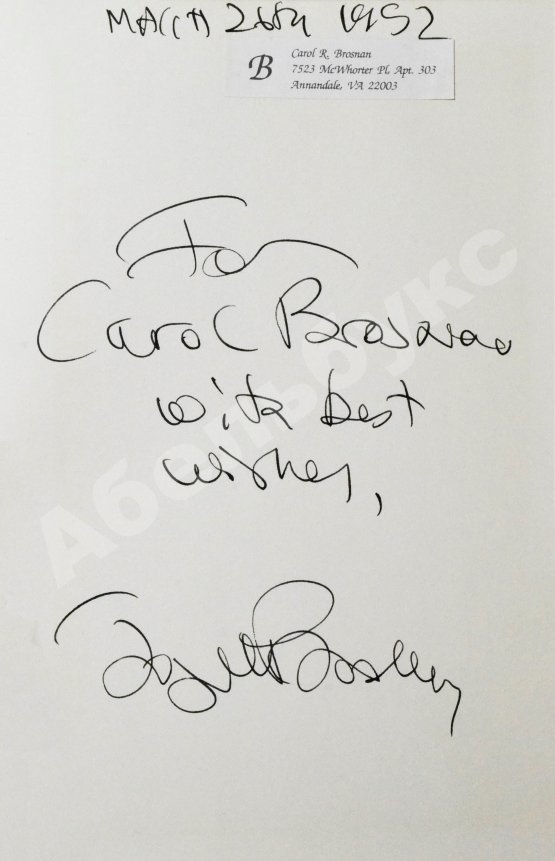 MARCH 26th 1992
B
Carol R. Brosnan
7523 McWhorter Pl, Apt. 303
Annandale, VA 22003
To
Carol Brosnan
with best
wishes,
Joseph Brodsky